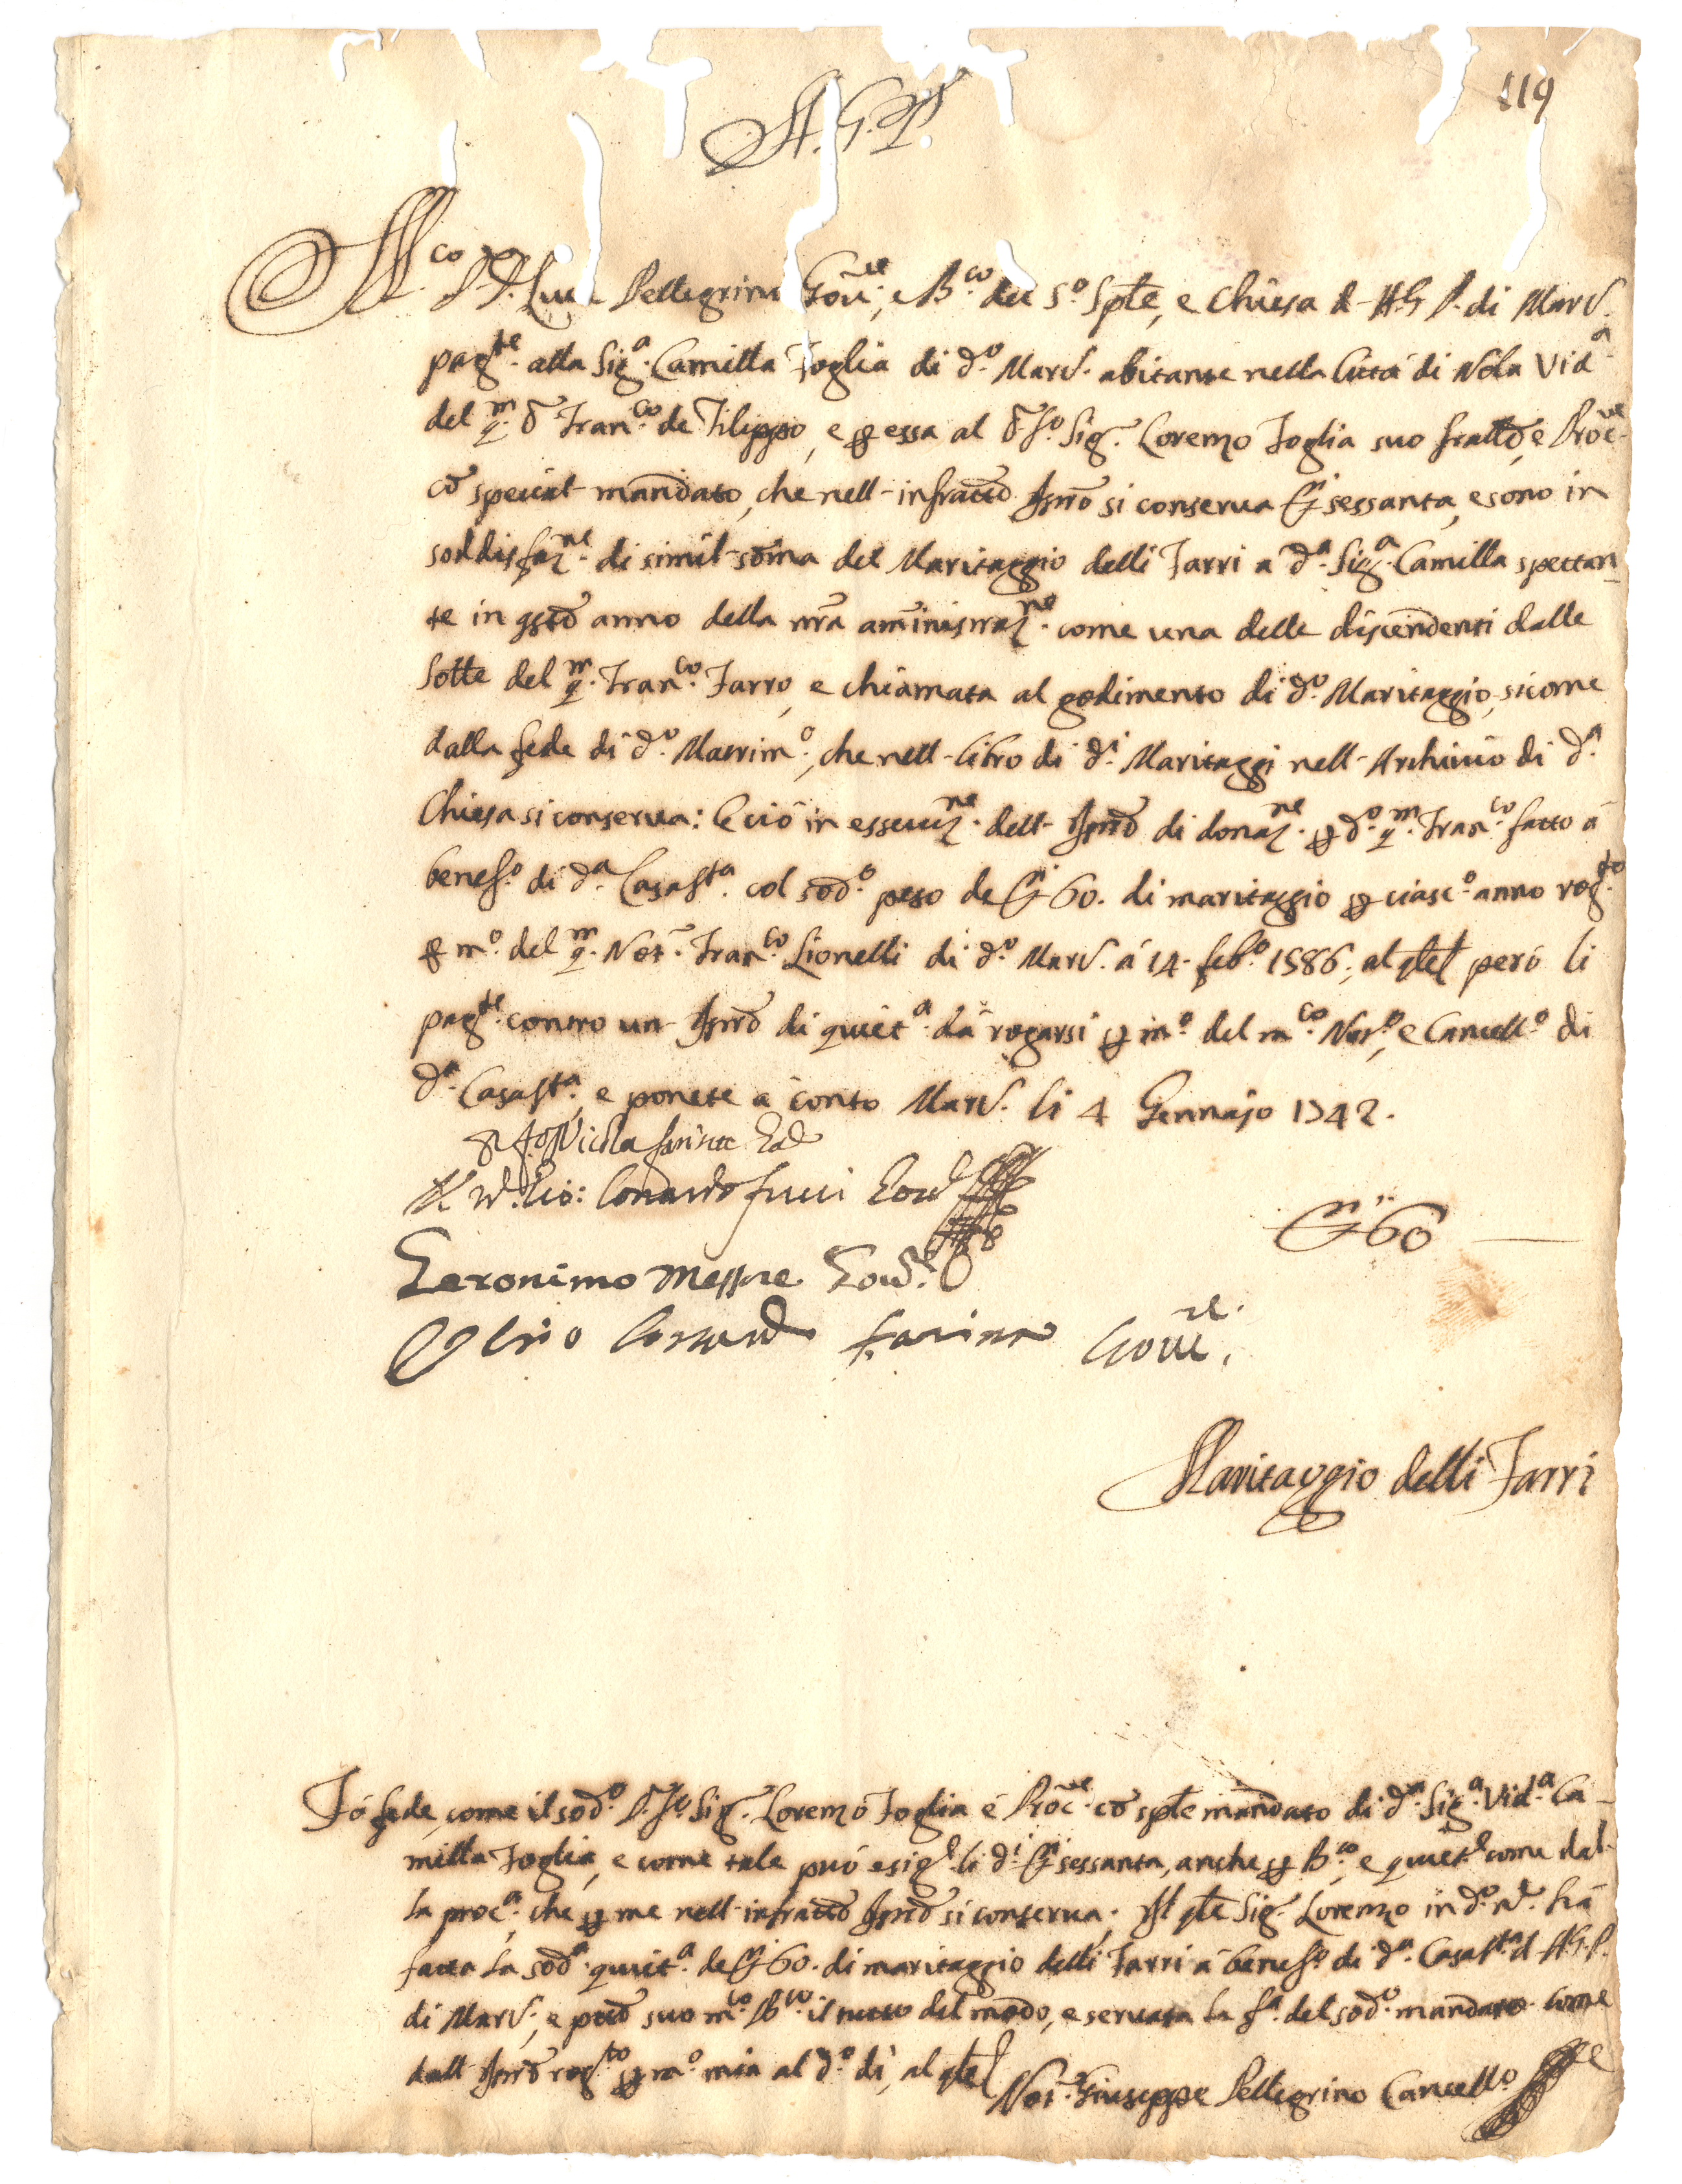 119
A. G. P.
M.co D. D. Luca Pellegrino Gov.re, e B.co del S.o Sp.le, e Chiesa d- A. G. P. di Mar.
pag.te alla Sig.a Camilla Foglia di d.o Mar. abitante nella Città di Nola Vid.a
del q.m D. Fran.co de Filippo, e p essa al D. F.o Sig. Lorenzo Foglia suo fratello, e Proc.re
cō special- mandato, che nell- infratto Istro si conserva D.ti sessanta, e sono in
soddisfaz.ne di simil- somma del Maritaggio delli Farri a d.a Sig.a Camilla spettan-
te in qsto anno della nra amministraz.ne come una delle discendenti dalle
Solle del q.m Fran.co Farro, e chiamata al godimento di d.o Maritaggio, sicome
dalla fede di d.o Matrim.o, che nell- libro di d.i Maritaggi nell- Archivio di d.a
Chiesa si conserva: E ciò in essecuz.ne dell- Istro di donaz.ne p d.o q.m Fran.co fatto à
benef.o di d.a Casa S.ta col sod.o peso de D.ti 60. di maritaggio p ciasc.o anno rog.to
p m.o del q.m Not. Fran.co Lionelli di d.o Mar. à 14. feb.o 1586; al qle però li
pag.te contro un- Istro di quiet.a dà rogarsi p m.o del m.co Not.o, e Cancell.o di
d.a Casa S.ta, e ponete à conto Mar. li 4 Gennajo 1742.
Nicola
Geronimo Messore Gov.re
D.ti 60
Farina Gov.re
Maritaggio delli Farri
Fò fede, come il sod.o D. F.o Sig. Lorenzo Foglia è Proc.re cō sple mandato di d.a Sig.a Vid.a Ca-
milla Foglia, e come tale può esig.e li d.i D.ti sessanta, anche p B.co, e quiet.e come dal-
la proc.a, che p me nell- infratto Istro si conserva; Il qle Sig. Lorenzo in d.o n.e hà
fatta la sod.a quiet.a de D.ti 60. di maritaggio delli Farri à benef.o di d.a Casa S.ta d- A. G. P.
di Mar., e p suo m.co B.co il tutto del modo, e servata la f.a del sod.o mandato come
dall- Istro rog.to p m.o mia al d.o dì, al qle
Not. Giuseppe Pellegrino Cancell.o